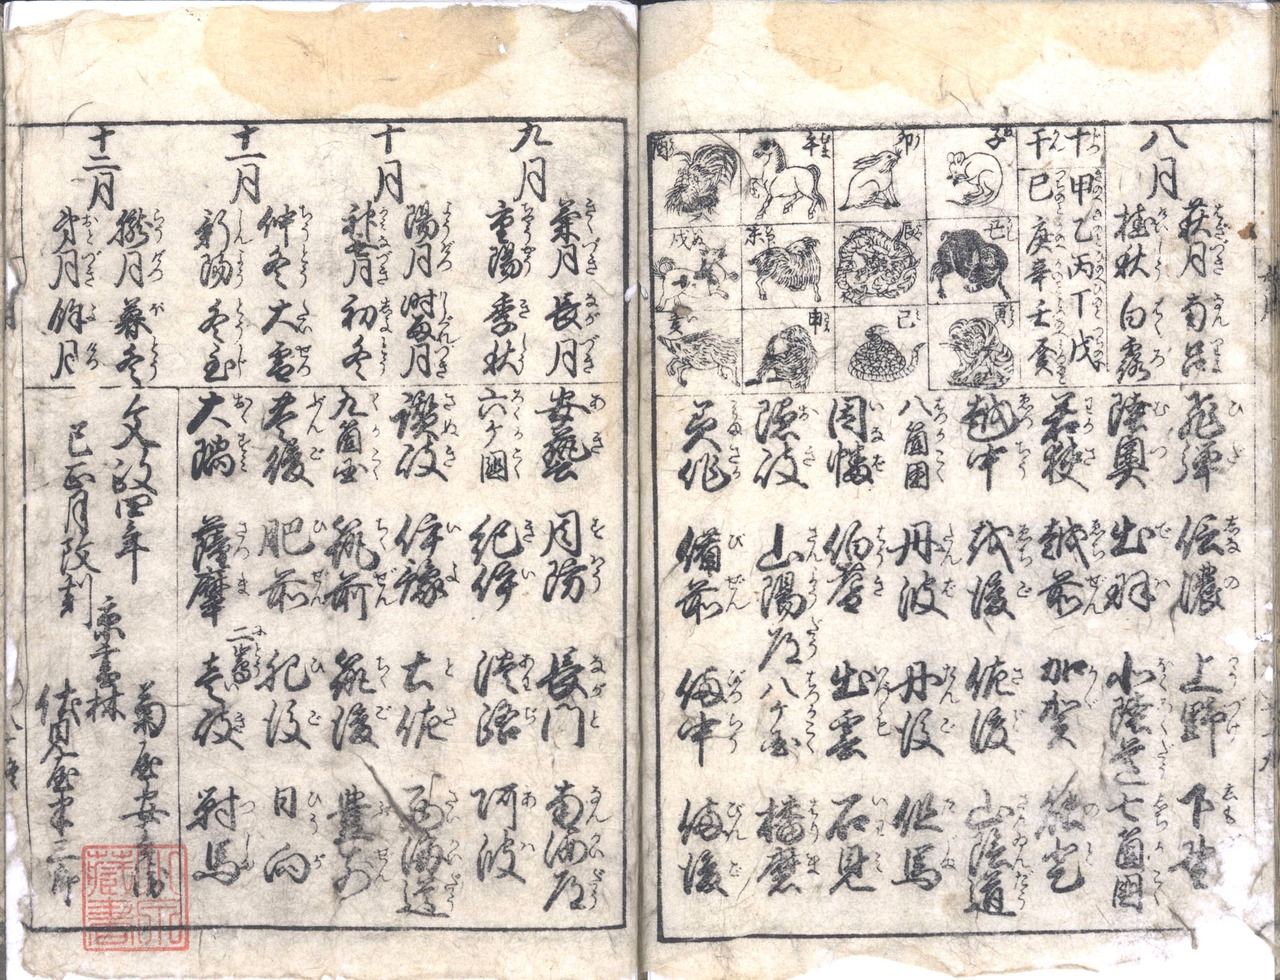 八月
萩月 南呂
桂秋 白露
十干 甲乙丙丁戊
己庚辛壬癸
子
丑
寅
卯
辰
巳
午
未
申
酉
戌
亥
飛騨 信濃 上野 下野
陸奥 出羽 北陸道七箇国
若狭 越前 加賀 能登
越中 越後 佐渡 山陰道
八箇国 丹波 丹後 但馬
因幡 伯耆 出雲 石見
隠岐 山陽道八ケ国 播磨
美作 備前 備中 備後
九月
菊月 長月
重陽 季秋
十月
陽月 時雨月
神無月 初冬
十一月
仲冬 大雪
新陽 冬至
十二月
臘月 暮冬
弟月 餘月
安藝 周防 長門 南海道
六ケ國 紀伊 淡路 阿波
讃岐 伊豫 土佐 西海道
九箇国 筑前 筑後 豊前
豊後 肥前 肥後 日向
大隅 薩摩 二島 壱岐 対馬
文政四年
巳正月改刻
京書林
菊屋安兵衛